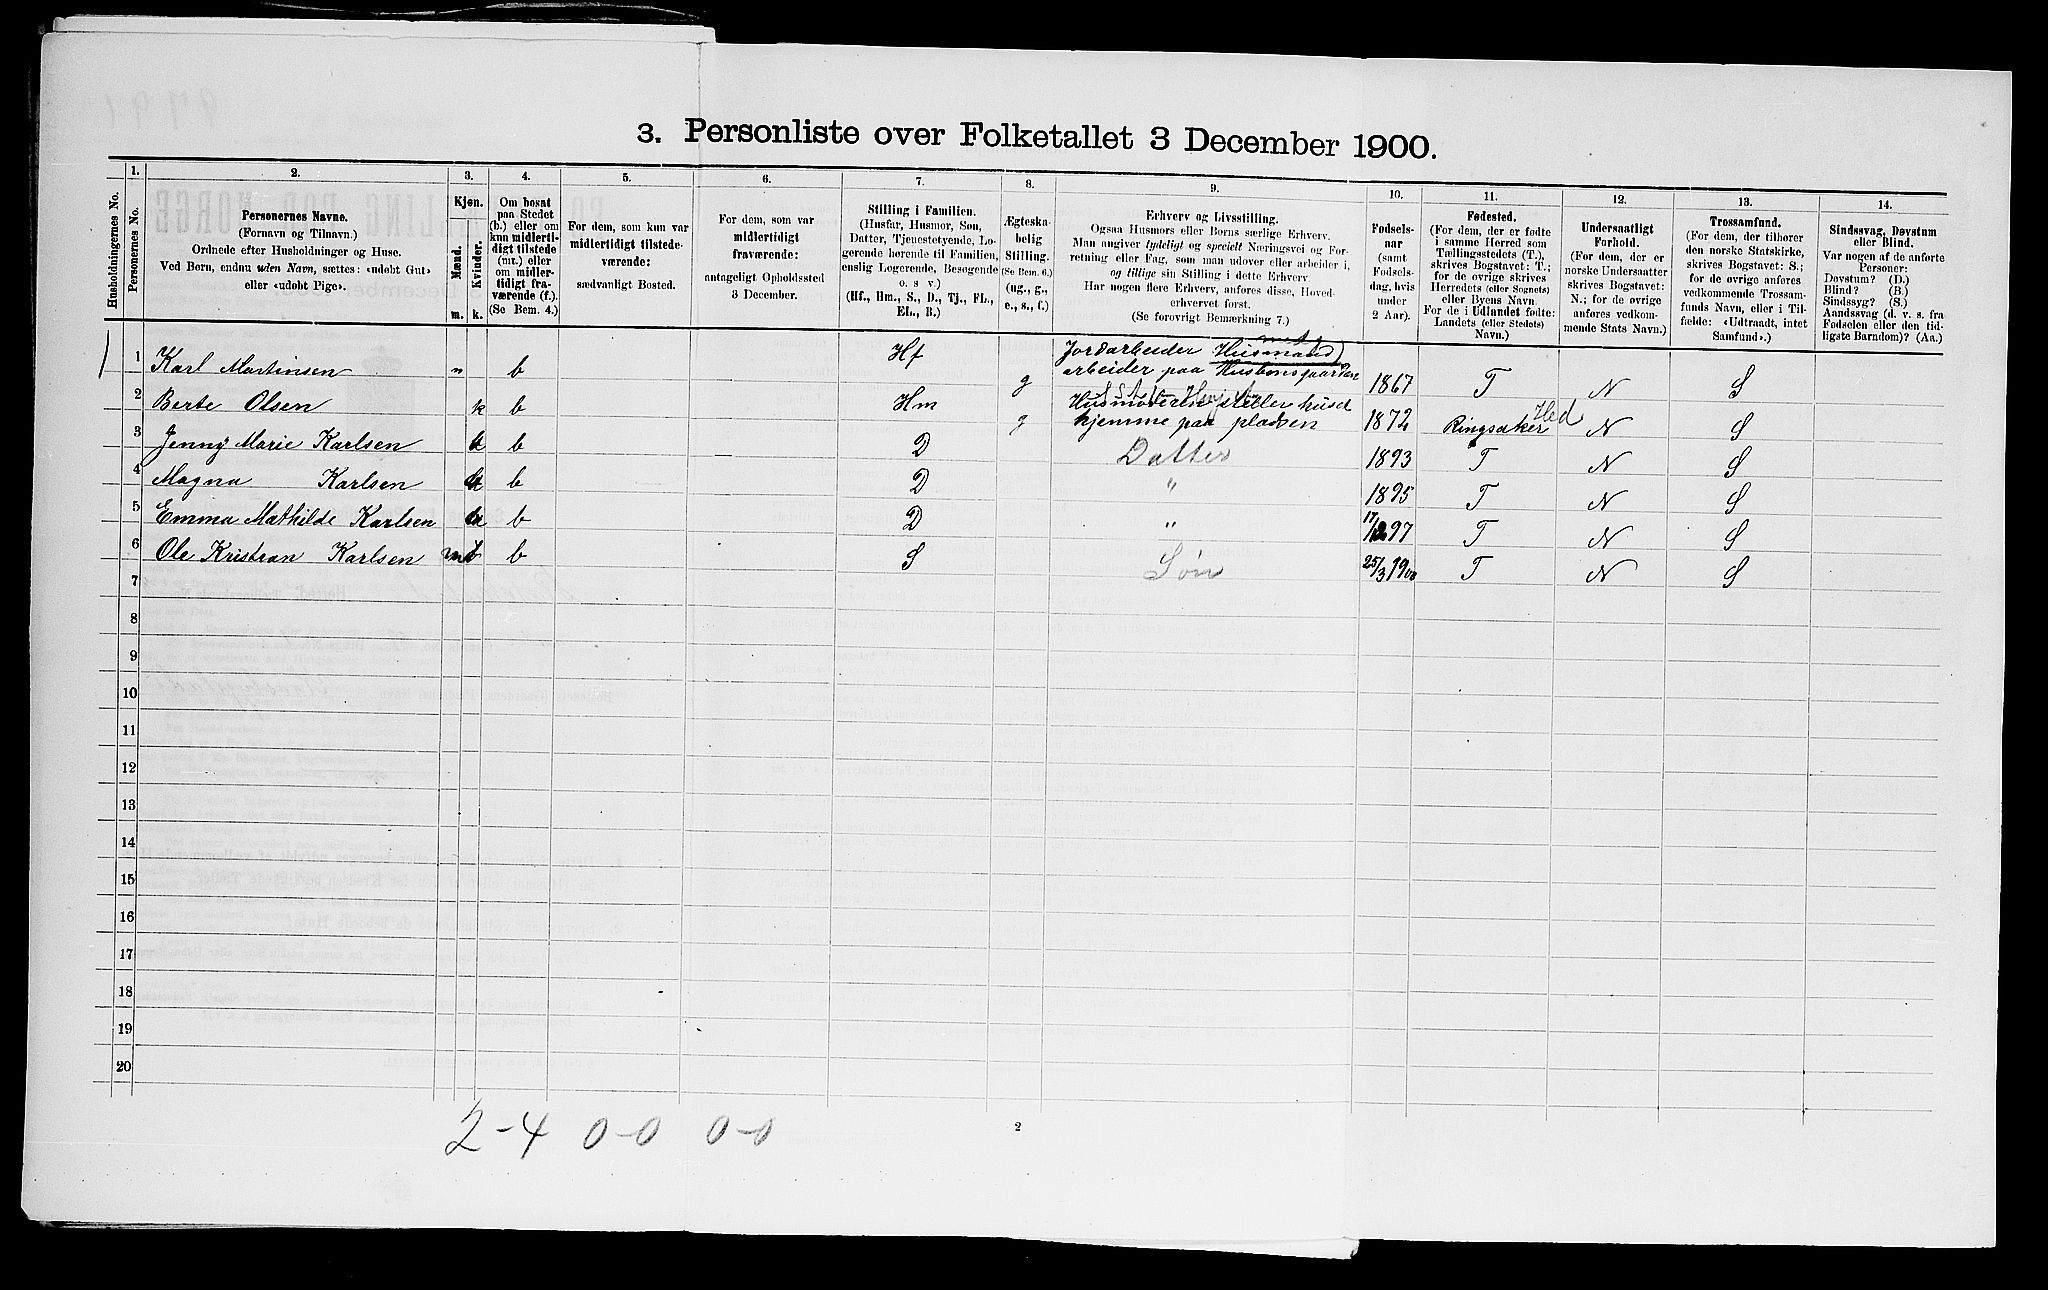 3. Personliste over Folketallet 3 December 1900.
Husholdningernes No.
1.
Personernes No.
2.
Personernes Navne.
(Fornavn og Tilnavn.)
Ordnede efter Husholdninger og Huse.
Ved Børn, endnu uden Navn, sættes: «udøbt Gut»
eller «udøbt Pige».
3.
Kjøn.
Mænd.
Kvinder.
m.
k.
4.
Om bosat
paa Stedet
(b.) eller om
kun midlerti-
digt tilstede
(mt.) eller
om midler-
tidigt fra-
værende (f.).
(Se Bem. 4.)
5.
For dem, som kun var
midlertidigt tilstede-
værende:
sædvanligt Bosted.
6.
For dem, som var
midlertidigt
fraværende:
antageligt Opholdssted
3 December.
7.
Stilling i Familien.
(Husfar, Husmor, Søn,
Datter, Tjenestetyende, Lo-
gerende hørende til Familien,
enslig Logerende, Besøgende
o. s. v.)
(Hf., Hm., S., D., Tj., FL.,
EL., B.)
8.
Ægteska-
belig
Stilling.
(Se Bem. 6.)
(ug., g.,
e., s., f.)
9.
Erhverv og Livsstilling.
Ogsaa Husmors eller Børns særlige Erhverv.
Man angiver tydeligt og specielt Næringsvei og For-
retning eller Fag, som man udøver eller arbeider i,
og tillige sin Stilling i dette Erhverv.
Har nogen flere Erhverv, anføres disse, Hoved-
erhvervet først.
(Se forøvrigt Bemærkning 7.)
10.
Fødsels-
aar
(samt
Fødsels-
dag, hvis
under
2 Aar).
11.
Fødested.
(For dem, der er fødte
i samme Herred som
Tællingsstedets (T.),
skrives Bogstavet: T.;
for de øvrige skrives
Herredets (eller Sognets)
eller Byens Navn.
For de i Udlandet fødte:
Landets (eller Stedets)
Navn.)
12.
Undersaatligt
Forhold.
(For dem, der er
norske Undersaatter
skrives Bogstavet:
N.; for de øvrige
anføres vedkom-
mende Stats Navn.)
13.
Trossamfund.
(For dem, der tilhører
den norske Statskirke,
skrives Bogstavet: S.;
for de øvrige anføres
vedkommende Trossam-
funds Navn, eller i Til-
fælde: «Udtraadt, intet
Samfund».)
14.
Sindssvag, Døvstum
eller Blind.
Var nogen af de anførte
Personer:
Døvstum? (D.)
Blind? (B.)
Sindssyg? (S.)
Aandssvag (d. v. s. fra
Fødselen eller den tid-
ligste Barndom)? (Aa.)
1 1 Karl Martinsen m b Hf g Jordarbeider Husmand med arbeider paa Husbonsgaarden 1867 T N S
2 Berte Olsen k b Hm g steller huset hjemme paa pladsen 1872 Ringsaker Hed N S
3 Jenny Marie Karlsen k b D Datter 1893 T N S
4 Magna Karlsen k b D " 1895 T N S
5 Emma Mathilde Karlsen k b D " 17/12 97 T N S
6 Ole Kristian Karlsen m b S Søn 25/3 1900 T N S
7
8
9
10
11
12
13
14
15
16
17
18
19
20
2-4 0-0 0-0
2